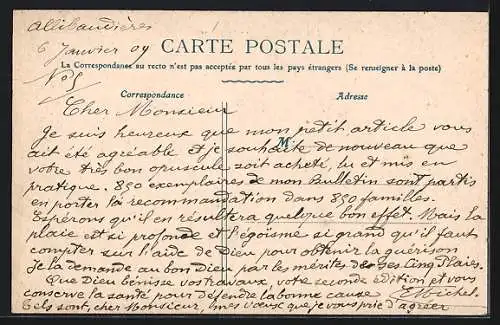 Allibaudières
6 Janvier 09
CARTE POSTALE
La Correspondance au recto n'est pas acceptée par tous les pays étrangers (Se renseigner à la poste)
No 5
Correspondance
Adresse
Cher Monsieur
M
Je suis heureux que mon petit article vous
ait été agréable et je souhaite de nouveau que
votre très bon opuscule soit acheté, lu et mis en
pratique. 850 exemplaires de mon Bulletin sont partis
en porter la recommandation dans 850 familles.
Espérons qu'il en résultera quelque bon effet. Mais la
plaie est si profonde et l'égoïsme si grand qu'il faut
compter sur l'aide de Dieu pour obtenir la guérison
Je la demande au bon Dieu par les mérites de ses Cinq Plaies.
Que Dieu bénisse vos travaux, votre seconde édition et vous
conserve la santé pour défendre la bonne cause.
Tels sont, cher Monsieur, mes vœux que je vous prie d'agréer
Michel